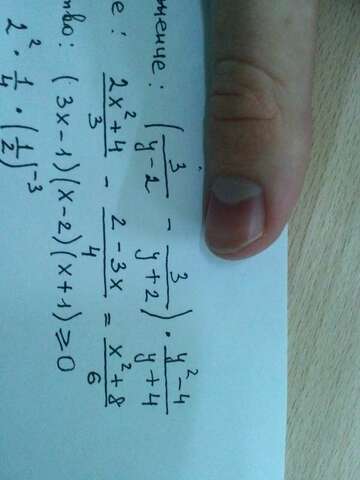 жение: (3/(y-2) - 3/(y+2)) · (y²-4)/(y+4)
е: (2x²+4)/3 - (2-3x)/4 = (x²+8)/6
тво: (3x-1)(x-2)(x+1)≥0
2² · 1/4 · (1/2)⁻³